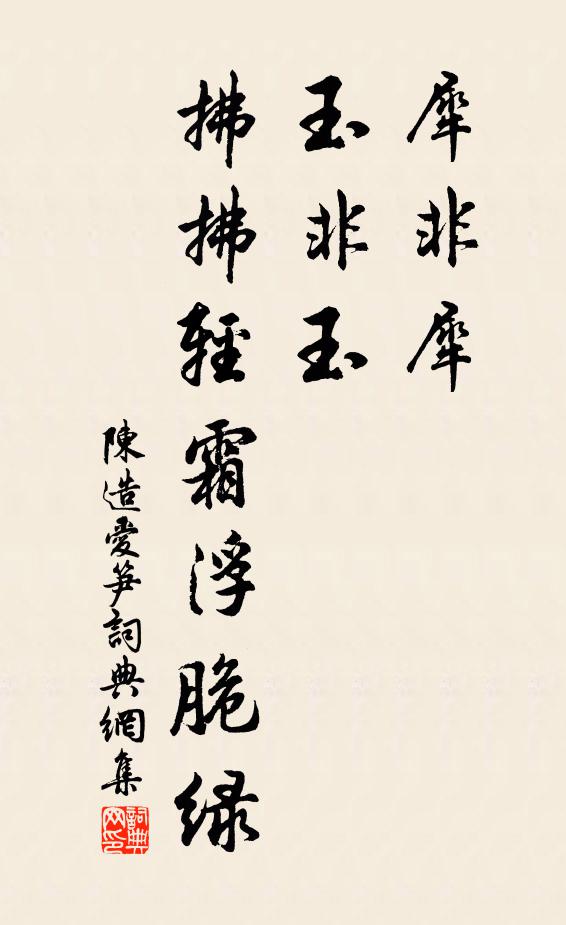 犀非犀
玉非玉
拂拂輕霜浮脆绿
陳造愛笋詞典網集
詞典网印